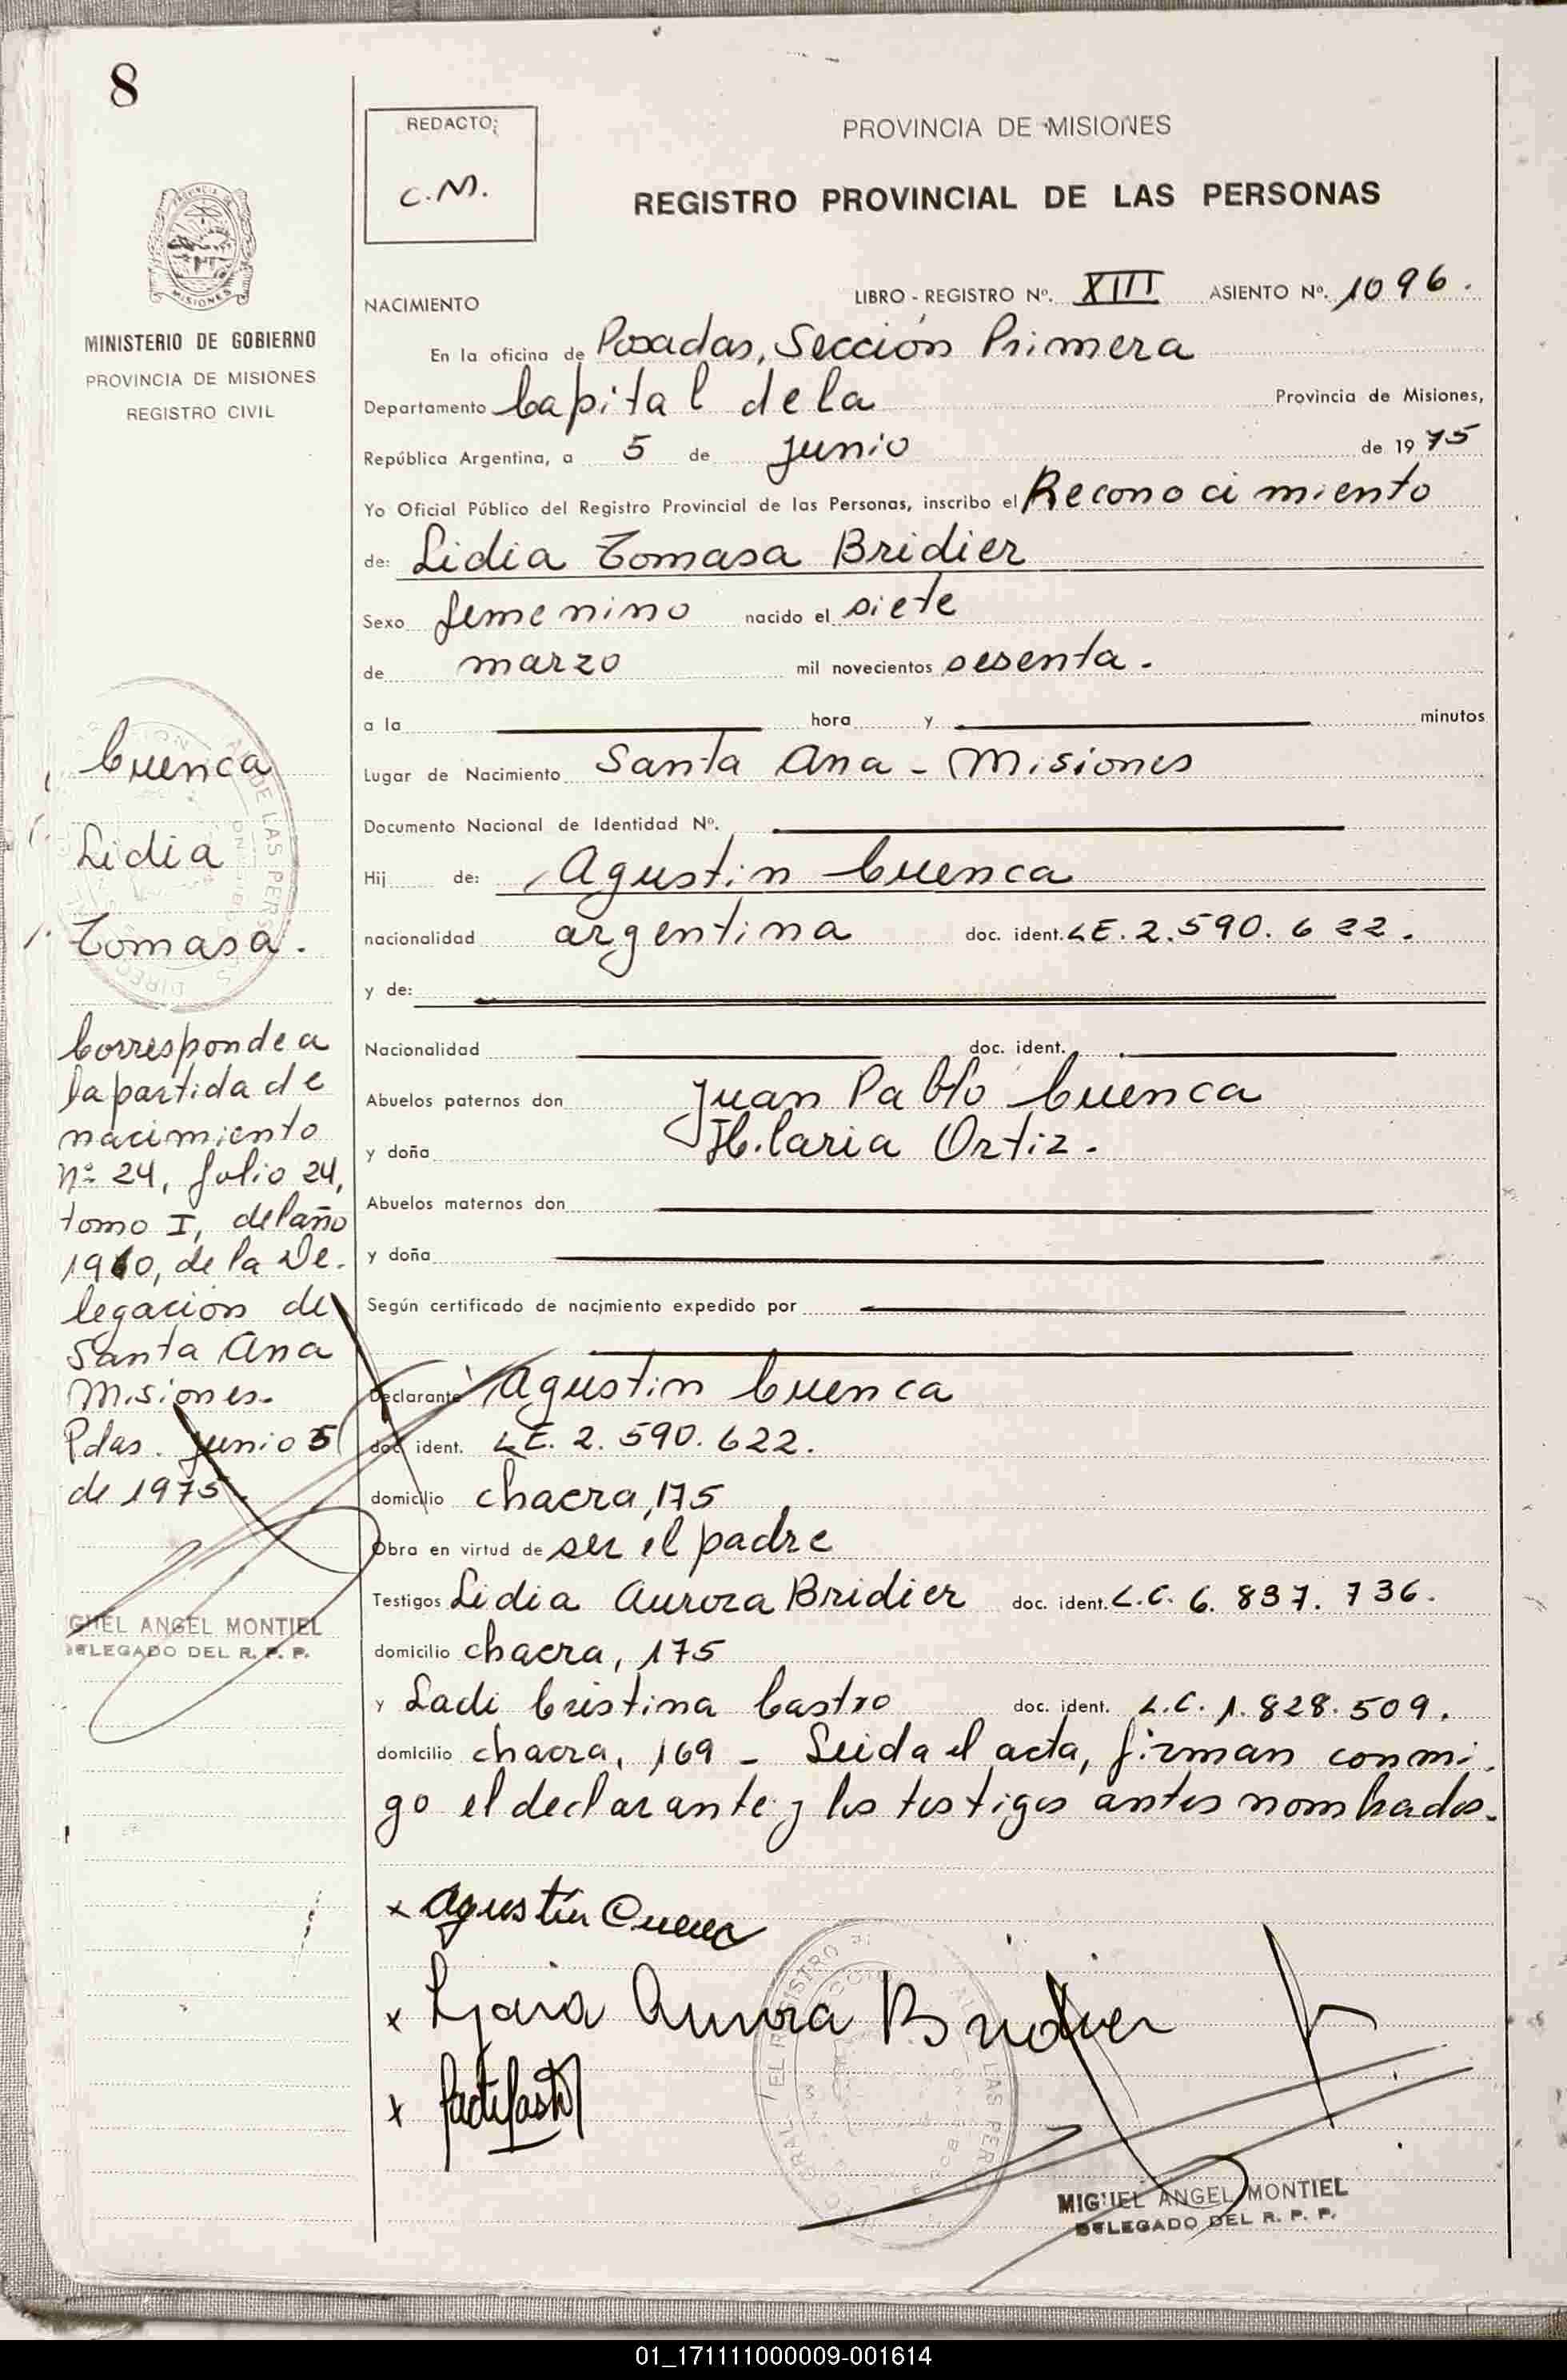 8
REDACTO:
C.M.
PROVINCIA DE MISIONES
REGISTRO PROVINCIAL DE LAS PERSONAS
MISIONES
MINISTERIO DE GOBIERNO
PROVINCIA DE MISIONES
REGISTRO CIVIL
NACIMIENTO
LIBRO - REGISTRO Nº. XIII ASIENTO Nº. 1096.
En la oficina de Posadas, Sección Primera
Departamento Capital de la Provincia de Misiones,
República Argentina, a 5 de Junio de 1975
Yo Oficial Público del Registro Provincial de las Personas, inscribo el Reconocimiento
de: Lidia Tomasa Bridier
Sexo femenino nacido el siete
de marzo mil novecientos sesenta.
a la hora y minutos
Lugar de Nacimiento Santa Ana - Misiones
Documento Nacional de Identidad Nº.
Hij de: Agustin Cuenca
nacionalidad argentina doc. ident. LE. 2.590.622.
y de:
Nacionalidad doc. ident.
Abuelos paternos don Juan Pablo Cuenca
y doña Hilaria Ortiz.
Abuelos maternos don
y doña
Según certificado de nacimiento expedido por
Declarante Agustin Cuenca
doc ident. LE. 2.590.622.
domicilio chacra, 175
Obra en virtud de ser el padre
Testigos Lidia Aurora Bridier doc. ident. L.C. 6.837.736.
domicilio chacra, 175
y Ladi Cristina Castro doc. ident. L.C. 1.828.509.
domicilio chacra, 169 - Leida el acta, firman conmi-
go el declarante y los testigos antes nombrados.
Cuenca
Lidia
Tomasa.
Corresponde a
la partida de
nacimiento
Nº 24, folio 24,
tomo I, del año
1960, de la De-
legación de
Santa Ana
Misiones.
Pdas. Junio 5
de 1975.
GUEL ANGEL MONTIEL
DELEGADO DEL R. P. P.
x Agustín Cuenca
x Lydia Aurora Bridier
x
MIGUEL ANGEL MONTIEL
DELEGADO DEL R. P. P.
01_171111000009-001614